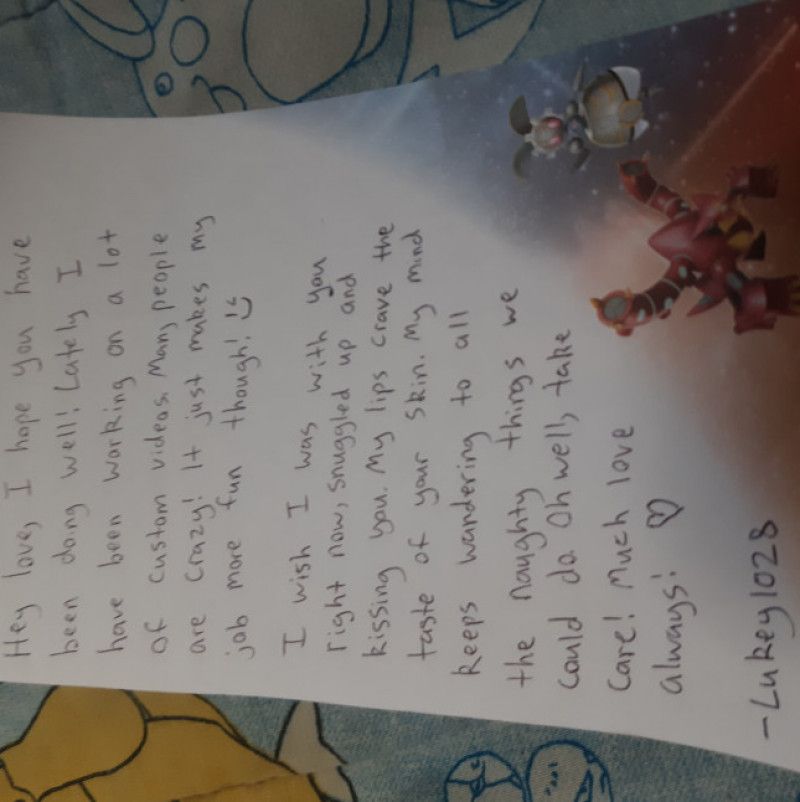 Hey love, I hope you have
been doing well! Lately I
have been working on a lot
of custom videos. Many people
are crazy! It just makes my
job more fun though! :)
I wish I was with you
right now, snuggled up and
kissing you. My lips crave the
taste of your skin. My mind
keeps wandering to all
the naughty things we
could do. Oh well, take
care! Much love
always! ♡
-Lukey1028